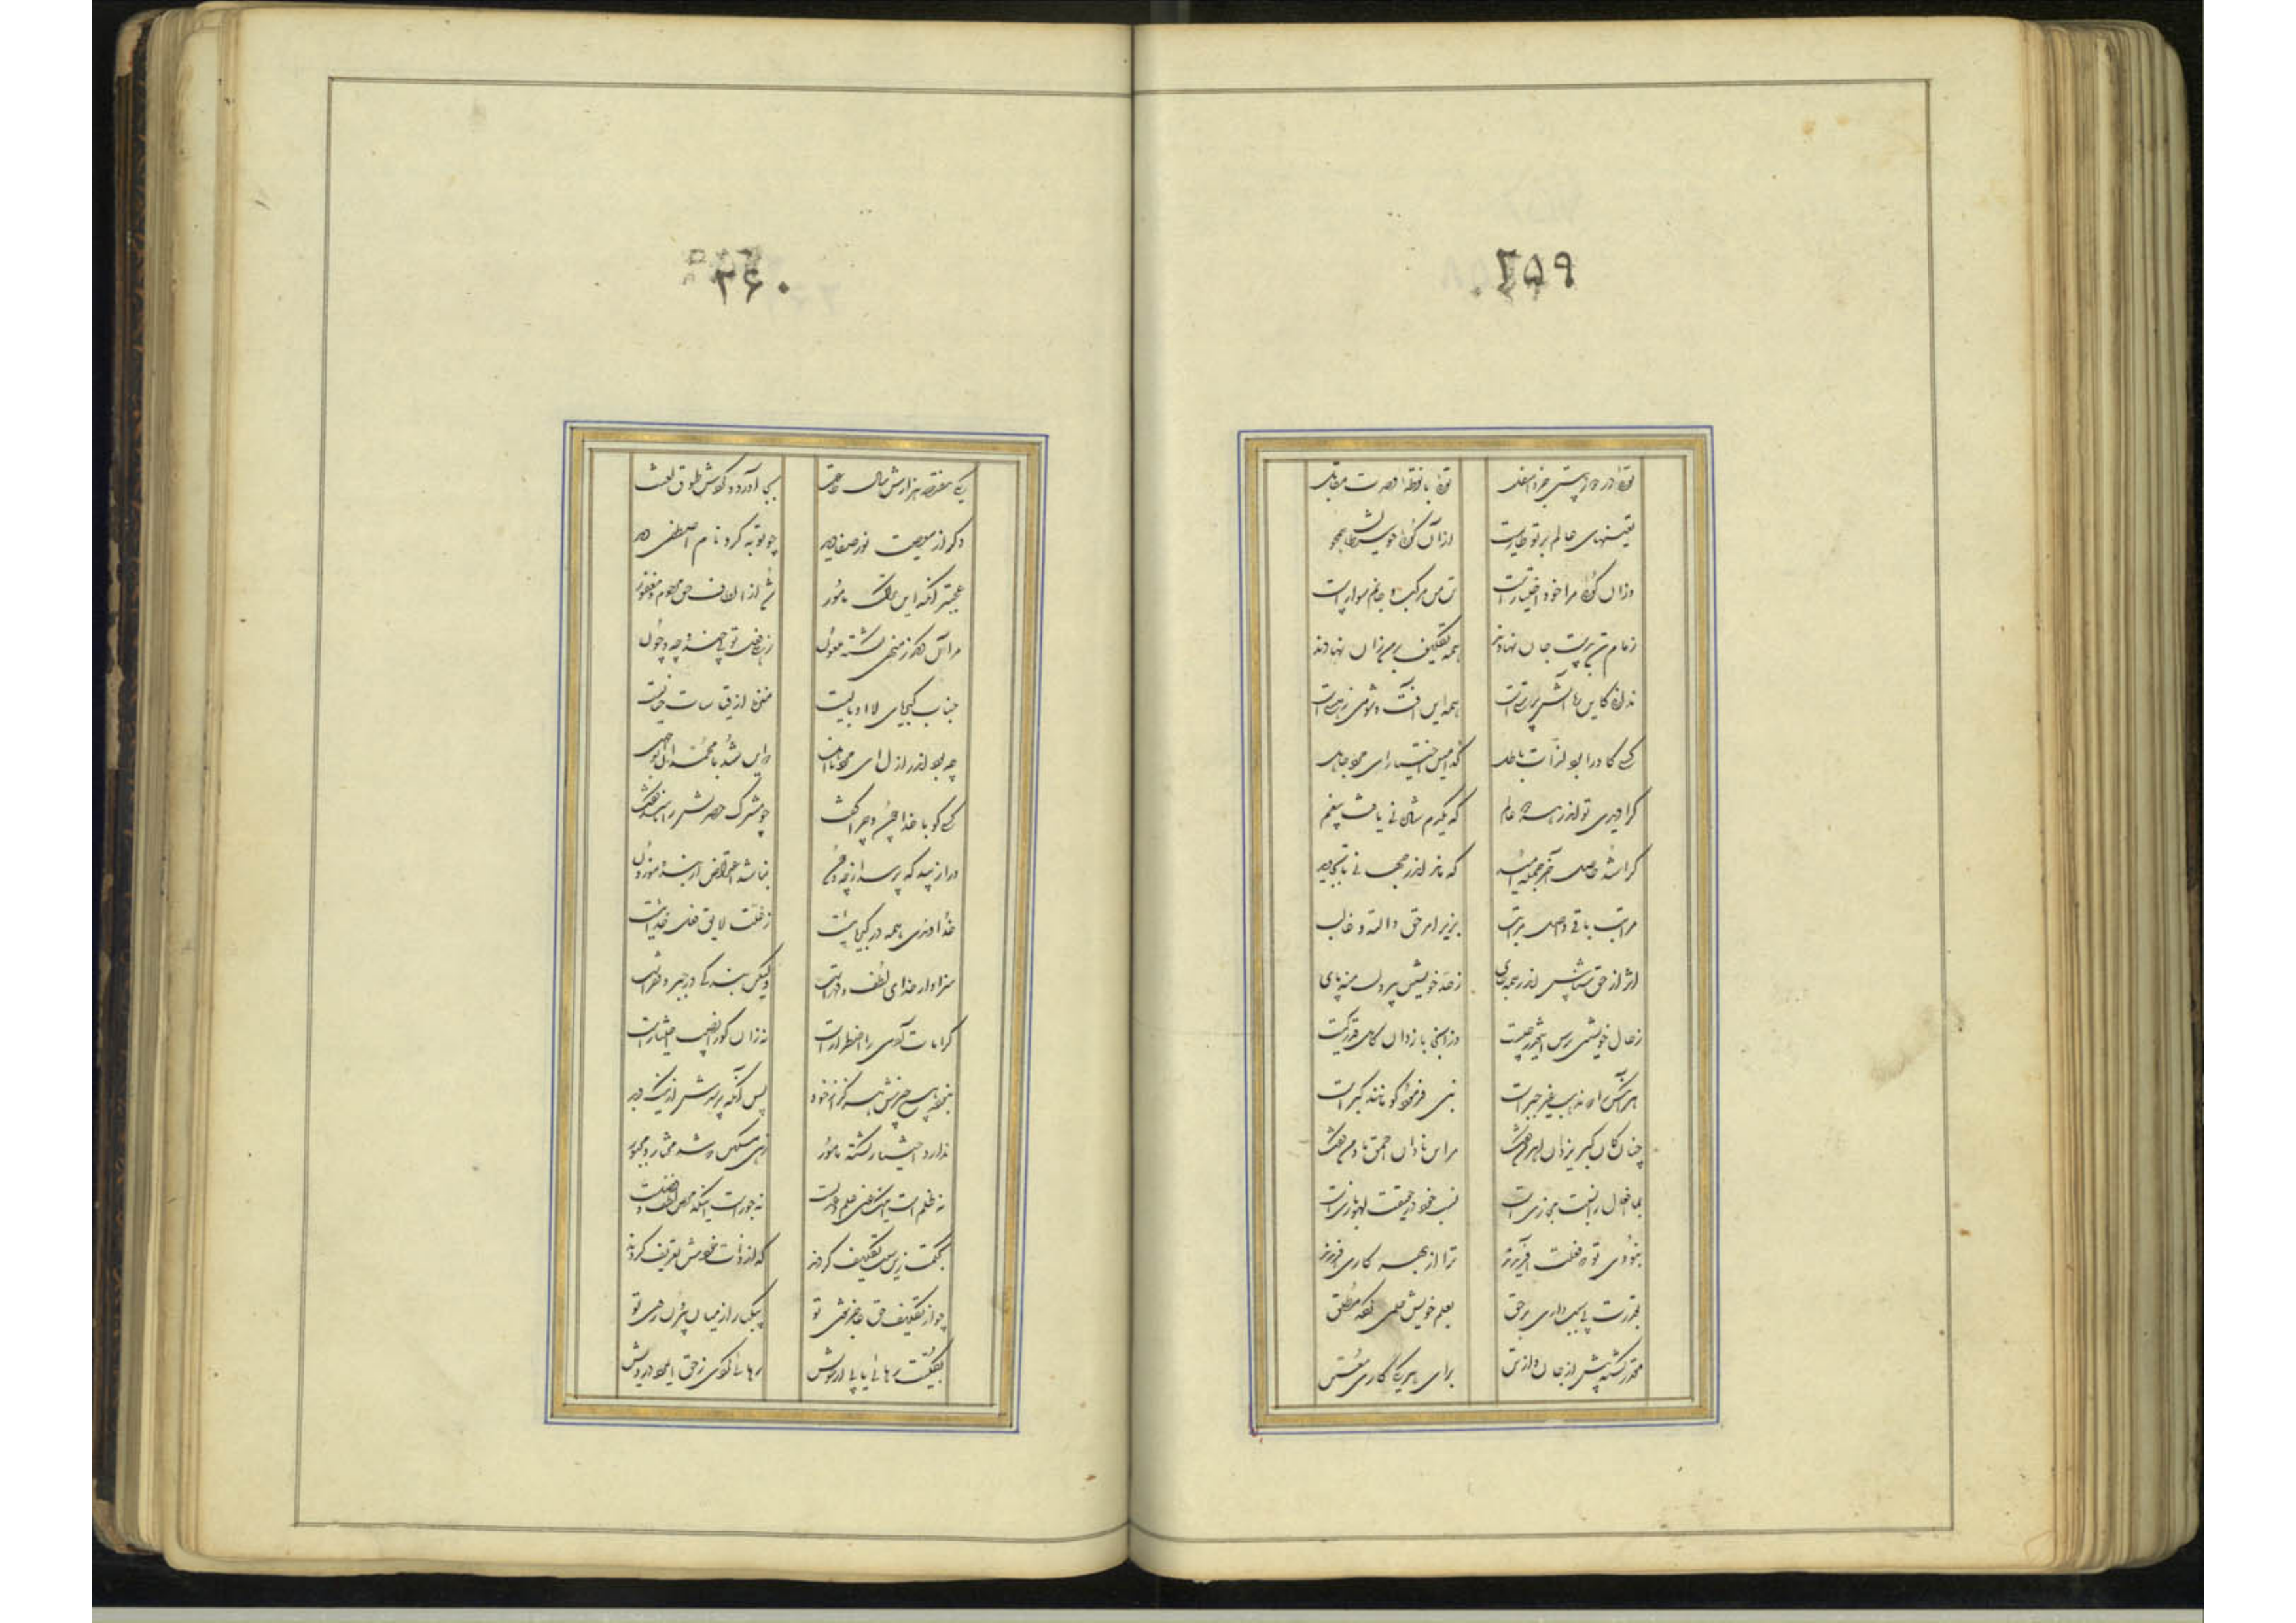 ۲۵۹
تو از دور هستی جزو اسفل
توئی با نقطه وحدت مقابل
تعینهای عالم بر تو طاریست
ازآن کوئی چو شیطان همچو
وزان کوئی مرا خود اختیارست
تن من مرکب و جانم سوارست
زمام تن بدست جان نهادند
همه تکلیف بر من زان نهادند
ندانی کاین ره آتش پرستی است
همه این آفت و شومی ز هستی است
کسی کاورا بود بالذات باطل
کدامین اختیار ای مرد جاهل
کرا دیدی تو اندر هر دو عالم
که یکدم شادمانی یافت بیغم
کرا شد حاصل آخر جمله امید
که ماند اندر کمالی تا بجاوید
مراتب باقی و اهل مراتب
بزیر امر حق والله غالب
اثر از حق شناس اندر همه جای
ز حد خویشتن بیرون منه پای
ز حال خویشتن پرس اینقدر چیست
وز آنجا باز دان کاهل قدر کیست
هر آنکس را که مذهب غیر جبر است
نبی فرمود کو مانند کبر است
چنان کان کبر یزدان اهرمن گفت
مر این نادان احمق ما و من گفت
بما افعال را نسبت مجازی است
نسب خود در حقیقت لهو و بازی است
نبودی تو که فعلت آفریدند
ترا از بهر کاری برگزیدند
بقدرت بی سبب دارای بر حق
بعلم خویش حکمی کرده مطلق
مقدر گشته پیش از جان و از تن
برای هر یکی کاری معین
۲۶۰
یکی هفتصد هزارش ساله طاعت
بجا آورد و کردش طوق لعنت
دکر از معصیت نور صفا دید
چو توبه کرد نام اصطفی دید
عجبتر آنکه این از ترک مامور
شد از الطاف حق مرحوم و مغفور
مر آن دیکر ز منهی گشته ملعون
زهی فعل تو بی چند و چه و چون
جناب کبریای لا ابالیست
منزه از قیاسات خیالیست
چه بود اندر ازل ای مرد نااهل
که این شد با محمد آن ابوجهل
کسی کو با خدا چون و چرا گفت
چو مشرک حضرتش را ناسزا گفت
ورا زیبد که پرسد از چه و چون
نباشد اعتراض از بنده موزون
خداوندی همه در کبریائیست
نه علت لایق فعل خدائیست
سزاوار خدای لطف و قهر است
ولیکن بندکی در جبر و فقر است
کرامات آدمی را اضطرار است
نه زان کورا نصیب اختیار است
نبوده هیچ چیزش هرکز از خود
پس آنکه پرسدش از نیک و از بد
ندارد اختیار و گشته مامور
زهی مسکین که شد مختار و مجبور
نه ظلم است اینکه عین علم و عدلست
نه جور است اینکه محض لطف و فضلست
بحکمت زین سبب تکلیف کردند
که از ذات خودش تعریف کردند
چو از تکلیف حق عاجز شوی تو
بیکبار از میان بیرون روی تو
بکلیت رهائی یابی از خویش
کردی ز حق ای مرد درویش